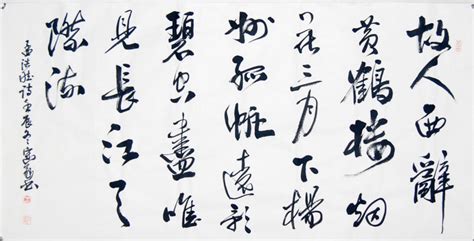 故人西辭
黄鶴樓烟
花三月下楊
州孤帆遠影
碧空盡唯
見長江天
際流
孟浩然詩壬辰冬